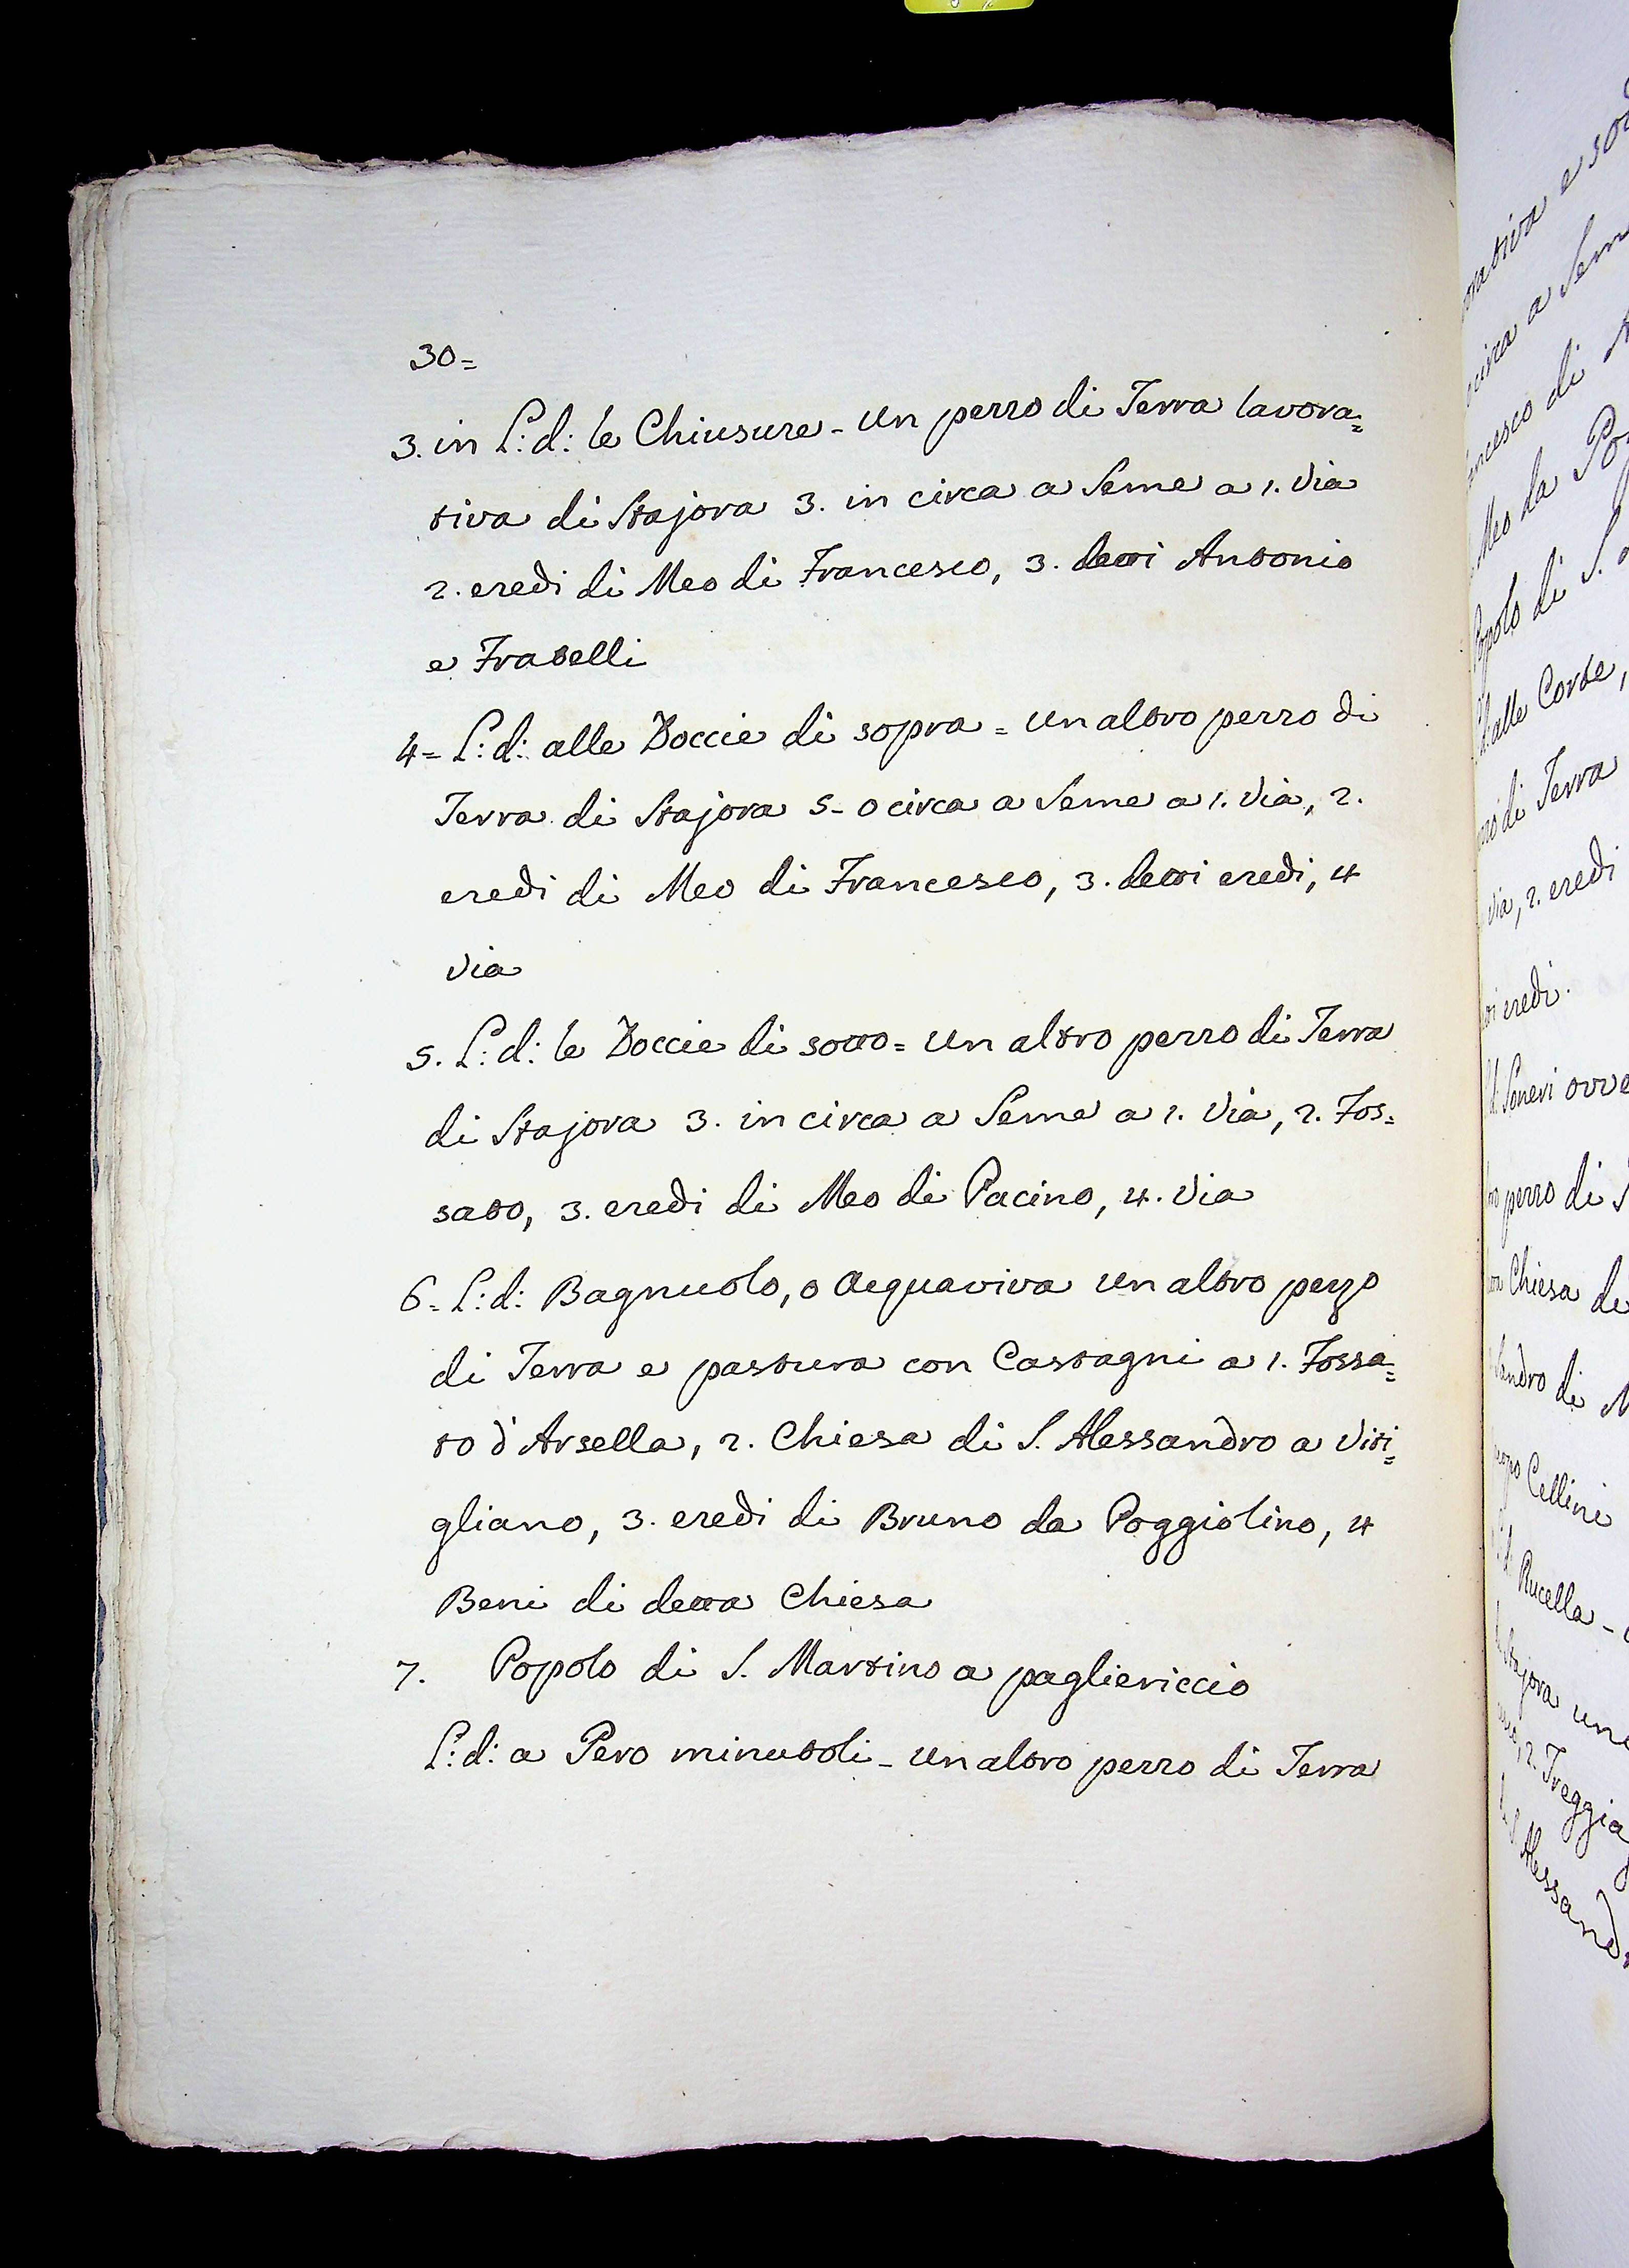 30=
3. in L: d: le Chiusure - un pezzo di Terra lavora=
tiva di Stajora 3. in circa a Seme a 1. Via
2. eredi di Meo di Francesco, 3. detti Antonio
e Fratelli
4= L: d: alle Doccie di sopra = un altro pezzo di
Terra di Stajora 5- o circa a Seme a 1. Via, 2.
eredi di Meo di Francesco, 3. detti eredi, 4
Via
5. L: d: le Doccie di sotto = un altro pezzo di Terra
di Stajora 3. in circa a Seme a 1. Via, 2. Fos=
sato, 3. eredi di Meo di Pacino, 4. Via
6= L: d: Bagnuolo, o Acquaviva un altro pezzo
di Terra e pastura con Castagni a 1. Fossa=
to d'Arsella, 2. Chiesa di S. Alessandro a Viti=
gliano, 3. eredi di Bruno da Poggiolino, 4
Beni di detta Chiesa
7. Popolo di S. Martino a pagliericcio
L: d: a Pero minutoli - un altro pezzo di Terra
circa a
Meo da
alle Corte,
di Terra
Via, 2. eredi
eredi.
pezzo di
Chiesa di
Cellini
Rucella -
Stajora
2. Treggia